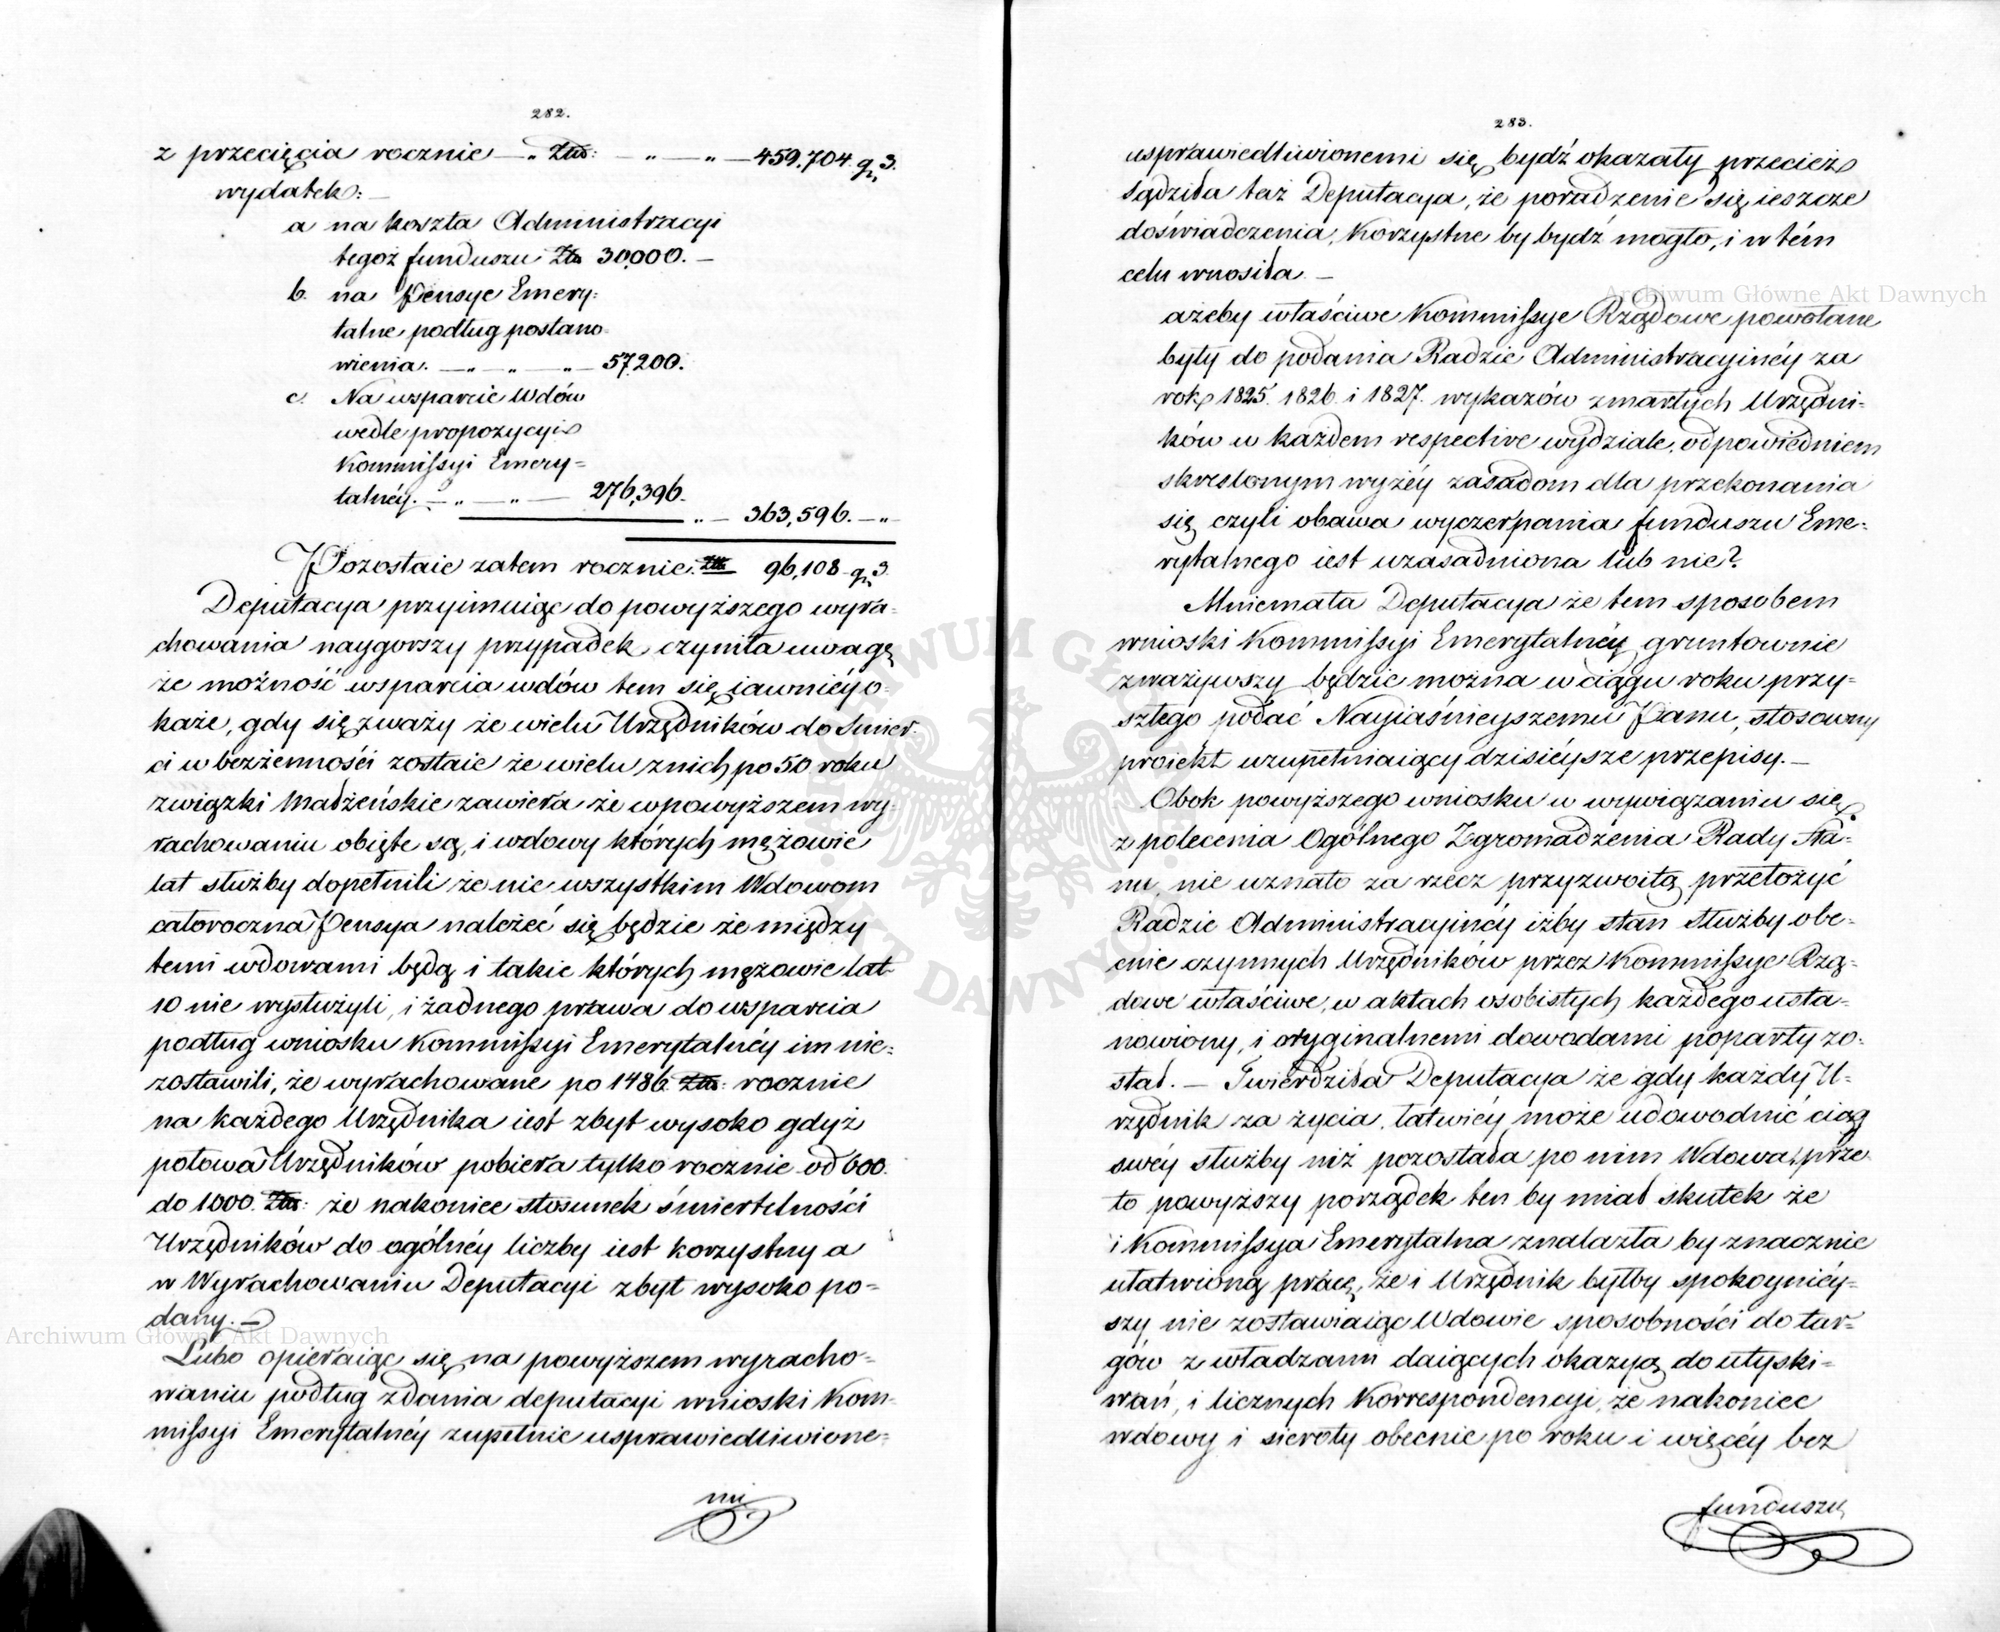 282.
z przecięcia rocznie — „ Złtt: — „ — „ — 459,704. gr. 3.
wydatek: —
a na koszta Administracyi
tegoż funduszu Złt 30,000. —
b. na Pensye Emery:
talne podług postano-
wienia. — „ — „ — „ — 57,200.
c. Na wsparcie Wdów
wedle propozycyi
Kommissyi Emery-
talnéy. — „ — „ — 276,396.
„ — 363,596. — „
Pozostaie zatem rocznie. Złt 96,108 gr. 3.
Deputacya przyimuiąc do powyższego wyra-
chowania naygorszy przypadek czyniła uwagę
że możność wsparcia wdów tem się iawniéy o-
każe, gdy się zważy że wielu Urzędników do śmier-
ci w bezżennośći zostaie że wielu z nich po 50 roku
związki Małżeńskie zawiera że w powyższem wy-
rachowaniu obięte są, i wdowy których mężowie
lat służby dopełnili że nie wszystkim Wdowom
całoroczna Pensya należeć się będzie że między
temi wdowami będą i takie których mężowie lat
10 nie wysłużyli, i żadnego prawa do wsparcia
podług wniosku Kommissyi Emerytalnéy im nie-
zostawili, że wyrachowane po 1486. Złt: rocznie
na każdego Urzędnika iest zbyt wysoko gdyż
połowa Urzędników pobiera tylko rocznie od 600.
do 1000. Złt: że nakoniec stosunek śmiertelności
Urzędników do ogólnéy liczby iest korzystny a
w Wyrachowaniu Deputacyi zbyt wysoko po-
dany. —
Lubo opieraiąc się na powyższem wyracho-
waniu podług zdania deputacyi wnioski Kom-
missyi Emerytalnéy zupełnie usprawiedliwione-
mi
283.
usprawiedliwionemi się bydź okazały przecież
sądziła taż Deputacya, że poradzenie się ieszcze
doświadczenia, korzystne by bydź mogło, i w tém
celu wnosiła —
ażeby właściwe Kommissye Rządowe powołane
były do podania Radzie Administracyinéy za
rok 1825. 1826. i 1827. wykazów zmarłych Urzędni-
ków w każdem respective wydziale, odpowiedniem
skreślonym wyżéy zasadom dla przekonania
się czyli obawa wyczerpania funduszu Eme-
rytalnego iest uzasadniona lub nie?
Mniemała Deputacya że tem sposobem
wnioski Kommissyi Emerytalnéy gruntownie
zważywszy będzie można w ciągu roku przy-
szłego podać Nayiaśnieyszemu Panu, stosowny
proiekt uzupełniaiący dzisiéysze przepisy. —
Obok powyższego wniosku w wywiązaniu się
z polecenia Ogólnego Zgromadzenia Rady Sta-
nu, nie uznało za rzecz przyzwoitą przełożyć
Radzie Administracyinéy iżby stan Służby obe-
cnie czynnych Urzędników przez Kommissye Rzą-
dowe właściwe, w aktach osobistych każdego usta-
nowiony, i oryginalnemi dowodami poparty zo-
stał. — Twierdziła Deputacya że gdy każdy U-
rzędnik za życia, łatwiéy może udowodnić ciąg
swéy służby niż pozostała po nim Wdowa, prze-
to powyższy porządek ten by miał skutek że
i Kommissya Emerytalna znalazła by znacznie
ułatwioną pracę, że i Urzędnik byłby spokoyniéy-
szy nie zostawiaiąc Wdowie sposobności do tar-
gów z władzami daiących okazyą do utyski-
wań, i licznych Korrespondencyi, że nakoniec
wdowy i sieroty obecnie po roku i więcéy bez
funduszu
Archiwum Główne Akt Dawnych
Archiwum Główne Akt Dawnych